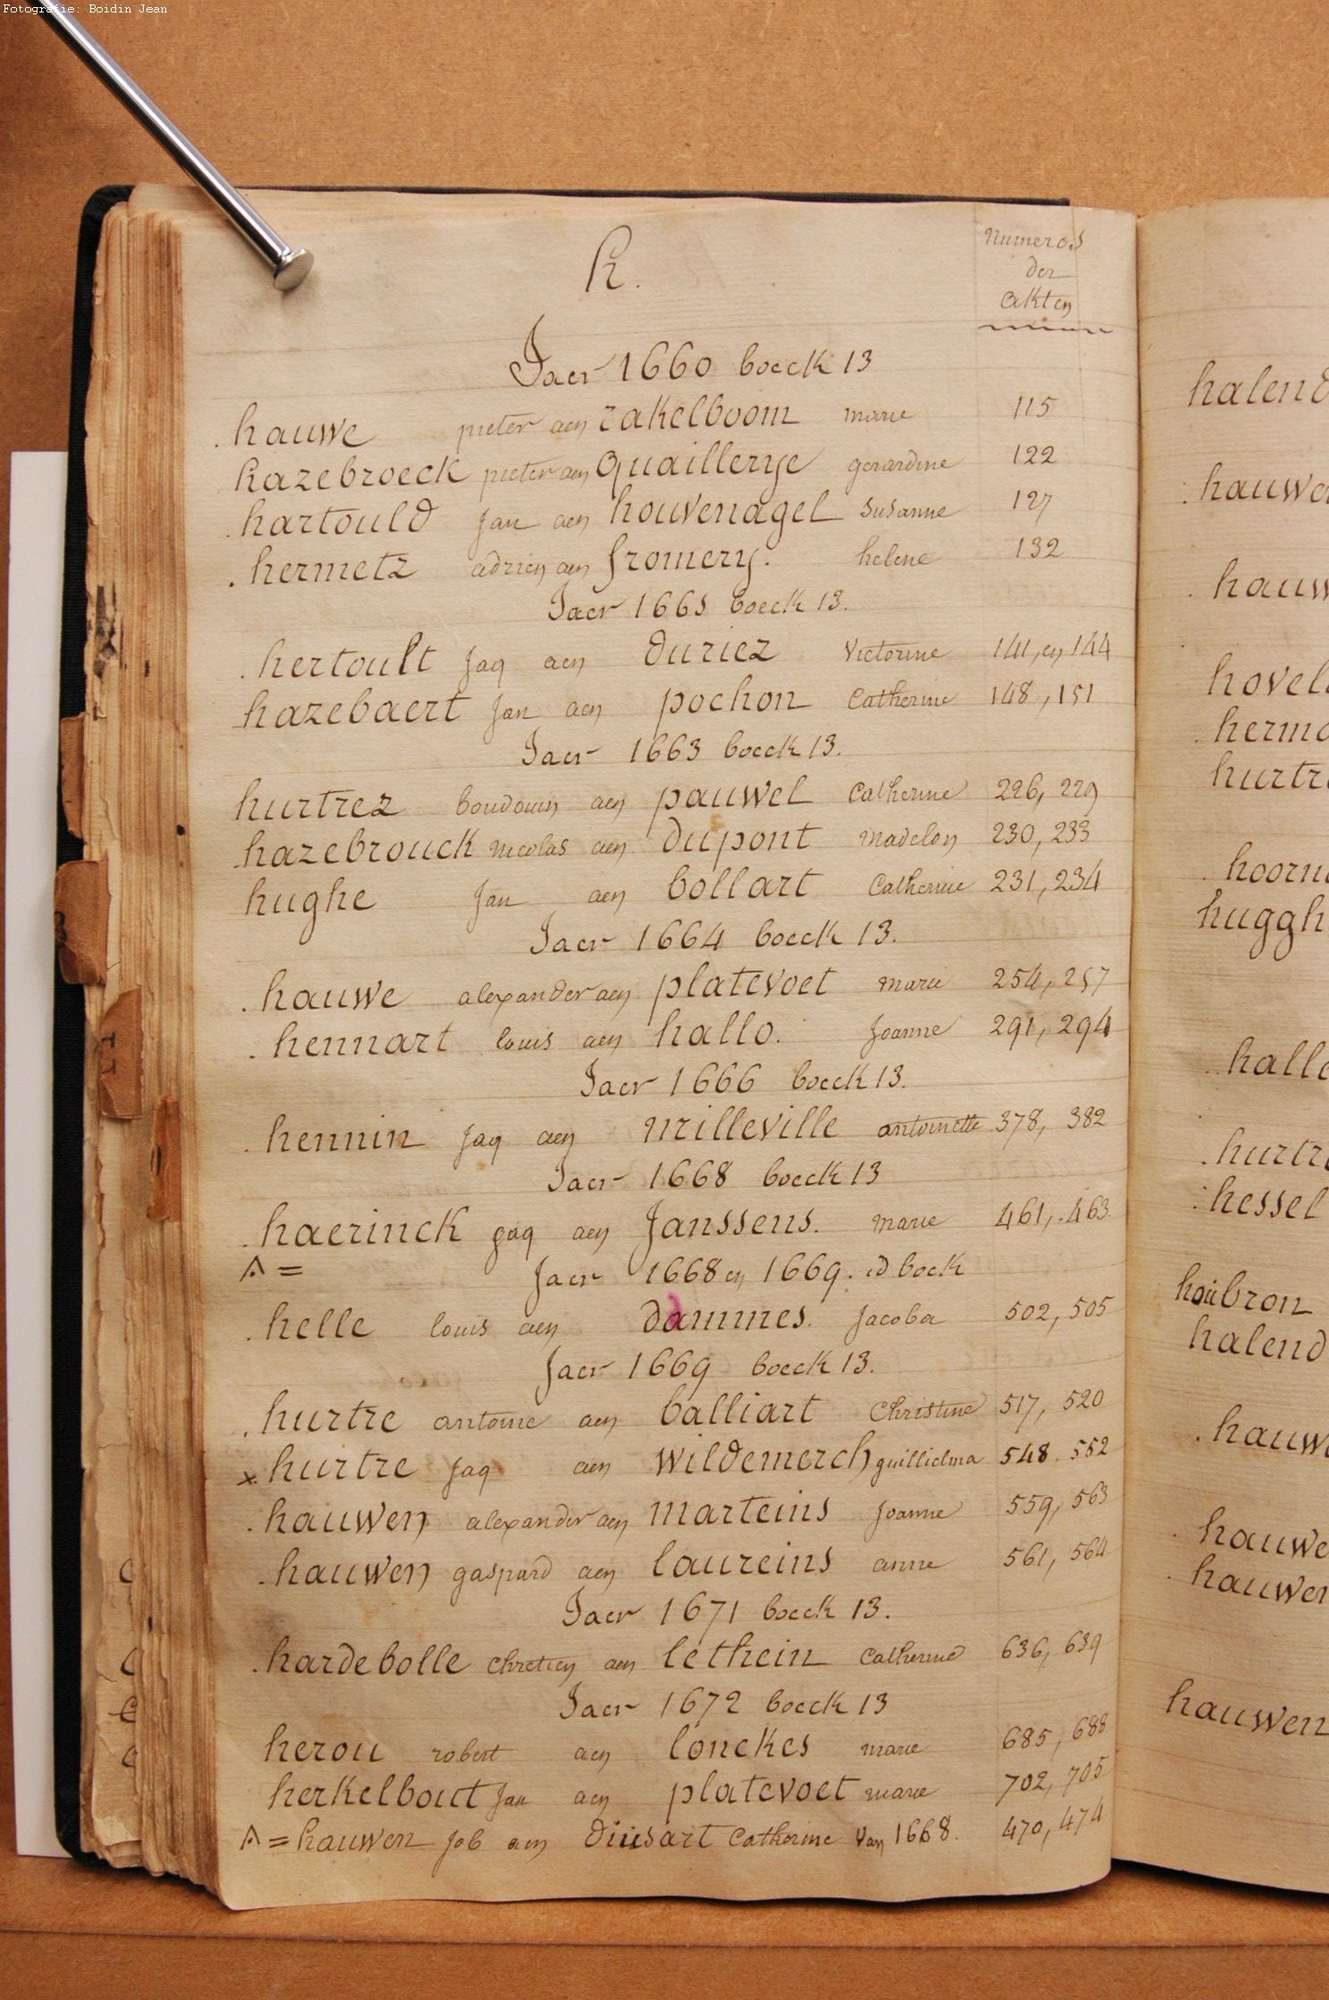 Fotografie: Boidin Jean
h.
Numeros
der
akten
Jaer 1660 boeck 13
hauwe pieter aen rakelboom marie 115
hazebroeck pieter aen Quaillerye gerardine 122
hartould Jan aen houvenagel Susanne 127
hermetz adrien aen fromery. helene 132
Jaer 1661 boeck 13.
hertoult Jaq aen duriez victorine 141, en 144
hazebaert Jan aen pochon Catherine 148, 151
Jaer 1663 boeck 13.
hurtrez boudouin aen pauwel Catherine 226, 229
hazebrouck nicolas aen dupont madelon 230, 233
hughe Jan aen bollart Catherine 231, 234
Jaer 1664 boeck 13.
hauwe alexander aen platevoet marie 254, 257
hennart louis aen hallo. Joanne 291, 294
Jaer 1666 boeck 13.
hennin Jaq aen milleville antoinette 378, 382
Jaer 1668 boeck 13
haerinck jaq aen Janssens. marie 461, 463
A = Jaer 1668 en 1669. id boek
helle louis aen dammes. Jacoba 502, 505
Jaer 1669 boeck 13.
hurtre antoine aen balliart Christine 517, 520
x hurtre Jaq aen wildemerch guillielma 548. 552
hauwen alexander aen marteins Joanne 559, 563
hauwen gaspard aen laureins anne 561, 564
Jaer 1671 boeck 13.
hardebolle chretien aen lethein Catherine 636, 639
Jaer 1672 boeck 13
herou robert aen lonckes marie 685, 688
herkelbout Jan aen platevoet marie 702, 705
A = hauwen Job aen diusart Catherine van 1668. 470, 474
halend
hauwe
hauw
hovel
herm
hurtr
hoorn
huggh
halle
hurtr
hessel
houbron
halend
hauw
hauwe
hauwen
hauwen